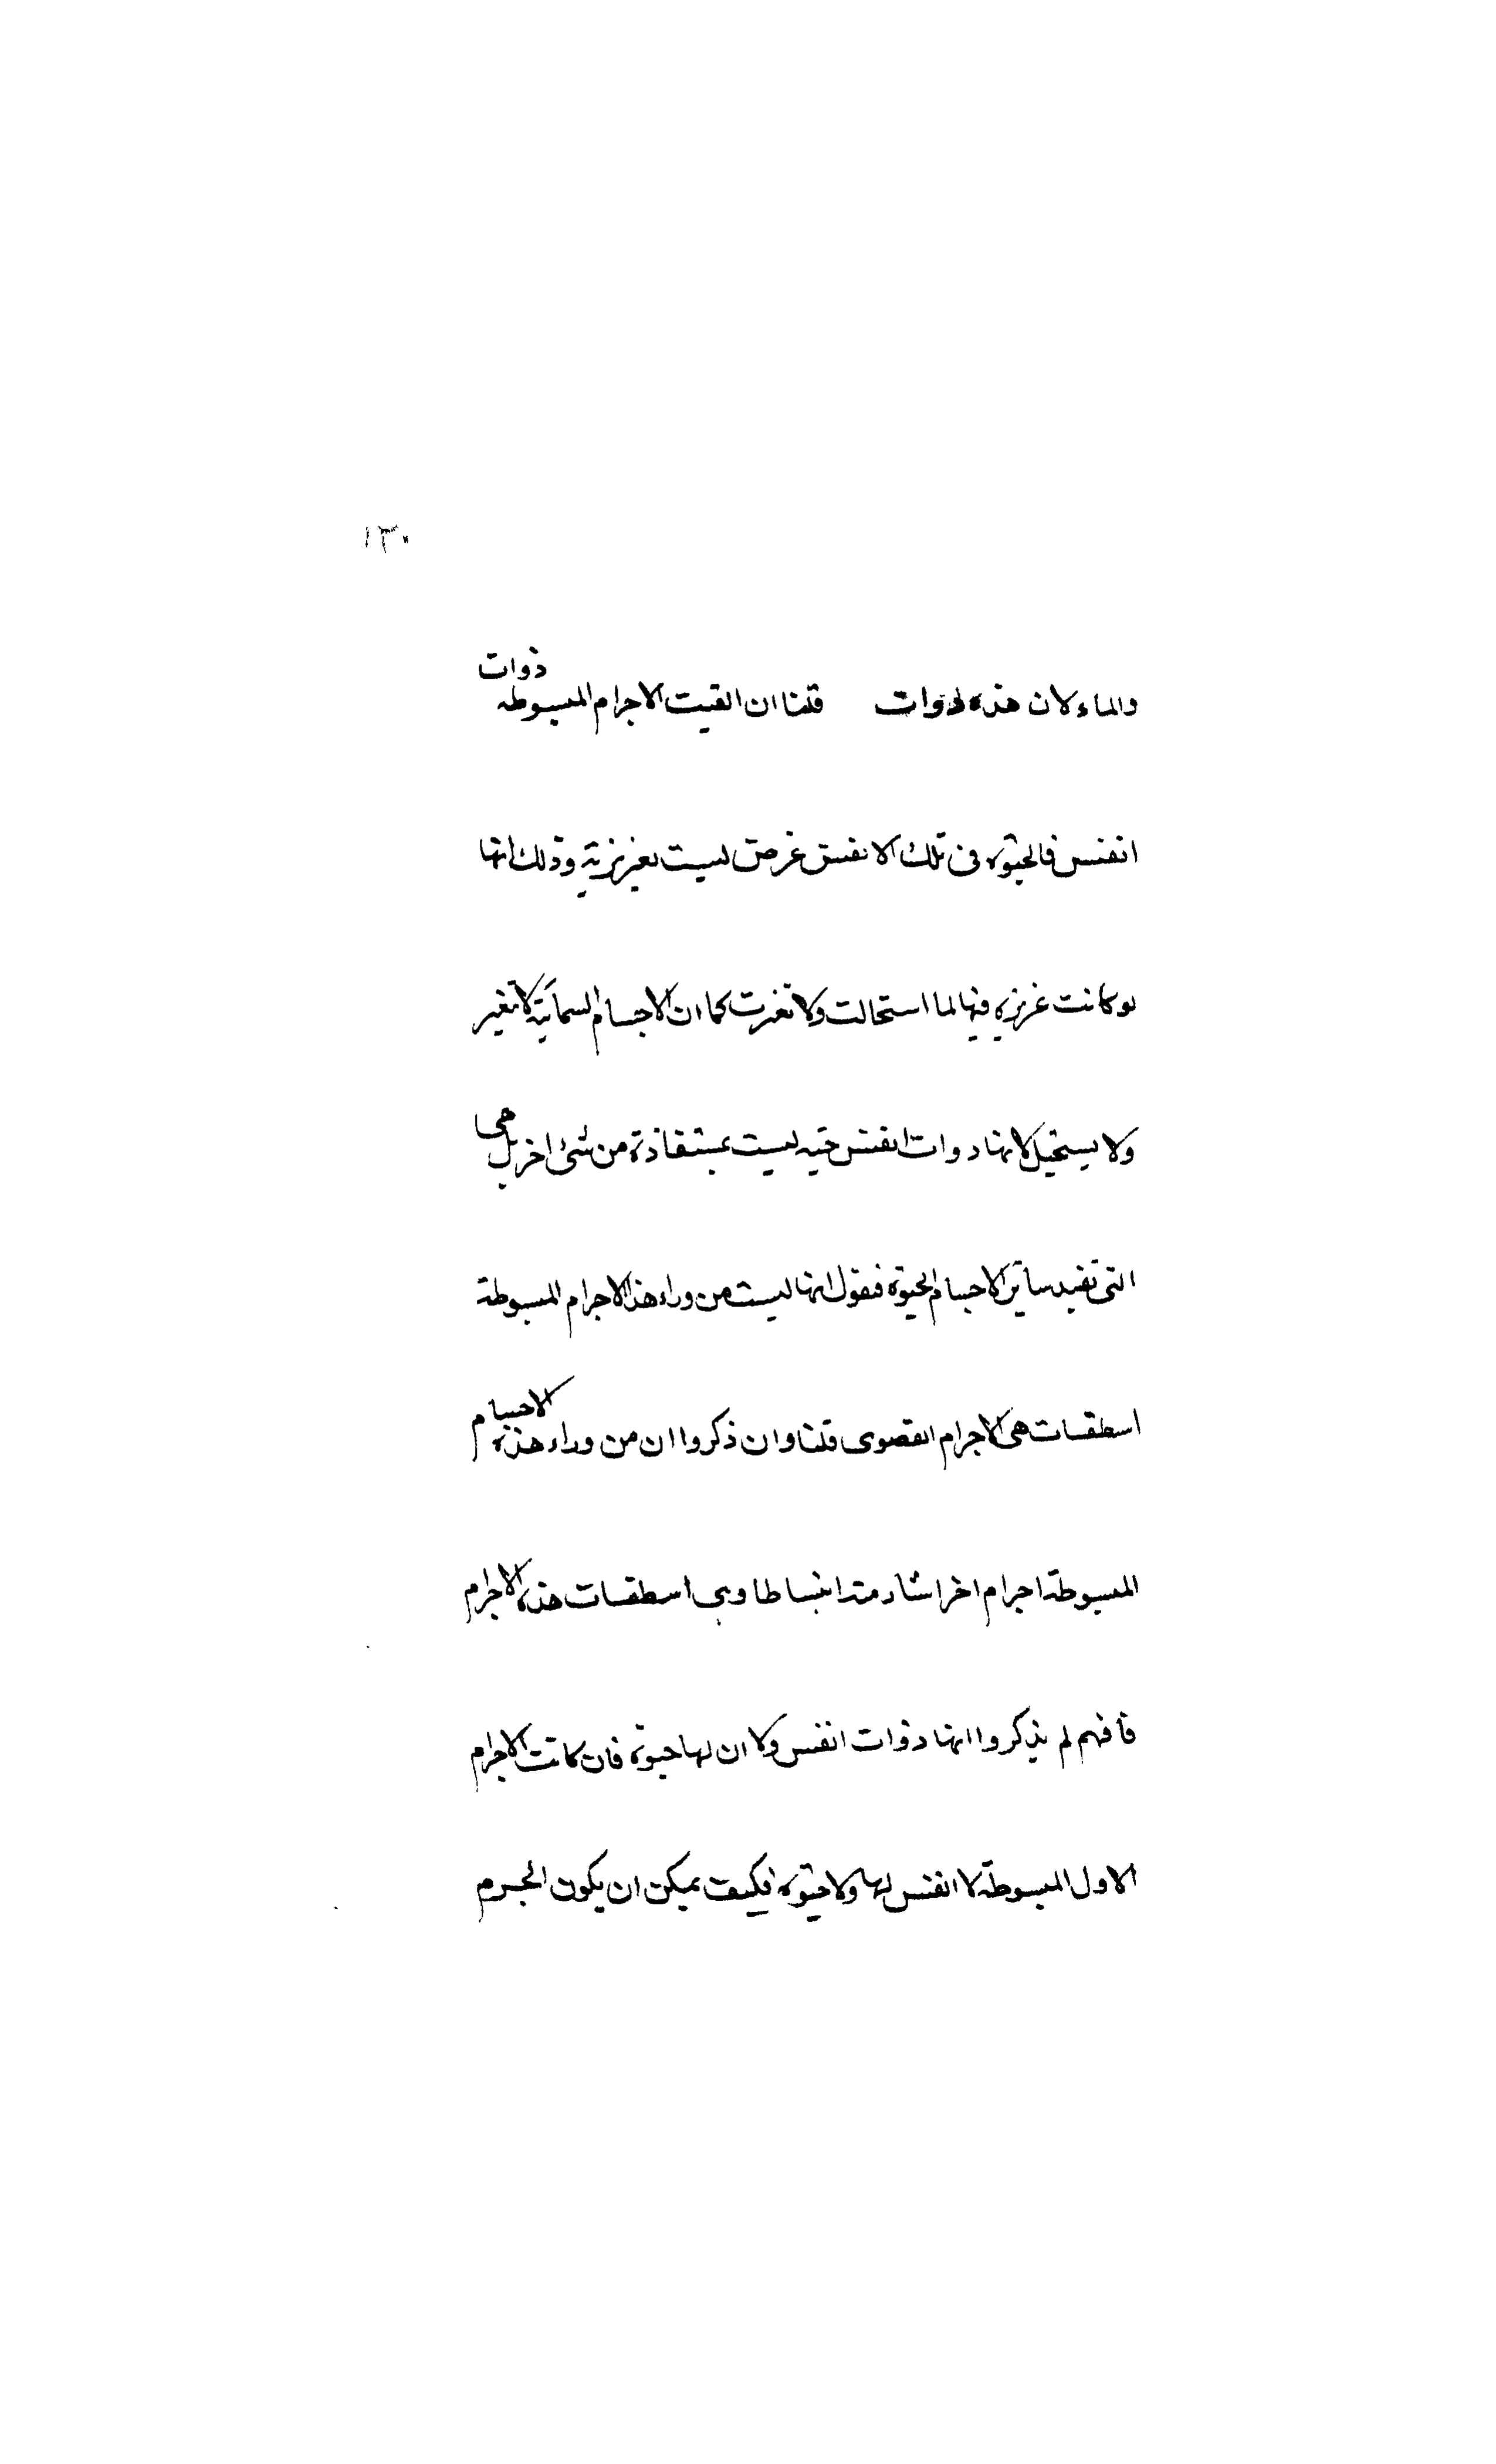 ١٣٠
والماء لان هذه ذوات قلنا ان القيت الاجرام المبسوطه ذوات
انفس فالحيوة فى تلك الانفس عرض ليست بغريزية وذلك انها
لو كانت غريزيه فيها لما استحالت ولا تغيرت كما ان الاجسام السمائية لا تغير
ولا يستحيل لانها ذوات انفس حيه ليست بمستفادة من شئ اخر بل هى
التى تفيد سائر الاجسام الحيوة فنقول انها ليست من وراء هذه الاجرام المبسوطة
اسطقسات هى الاجرام القصوى قلنا وان ذكروا ان من وراء هذه الاجسام
المبسوطة اجرام اخر اشد منه انبساطا وهى اسطقسات هذه الاجرام
فافهم لم يذكروا انها ذوات انفس ولا ان لها حيوة فان كانت الاجرام
الاول المبسوطة لا انفس لها ولا حيوة فكيف يمكن ان يكون الجرم